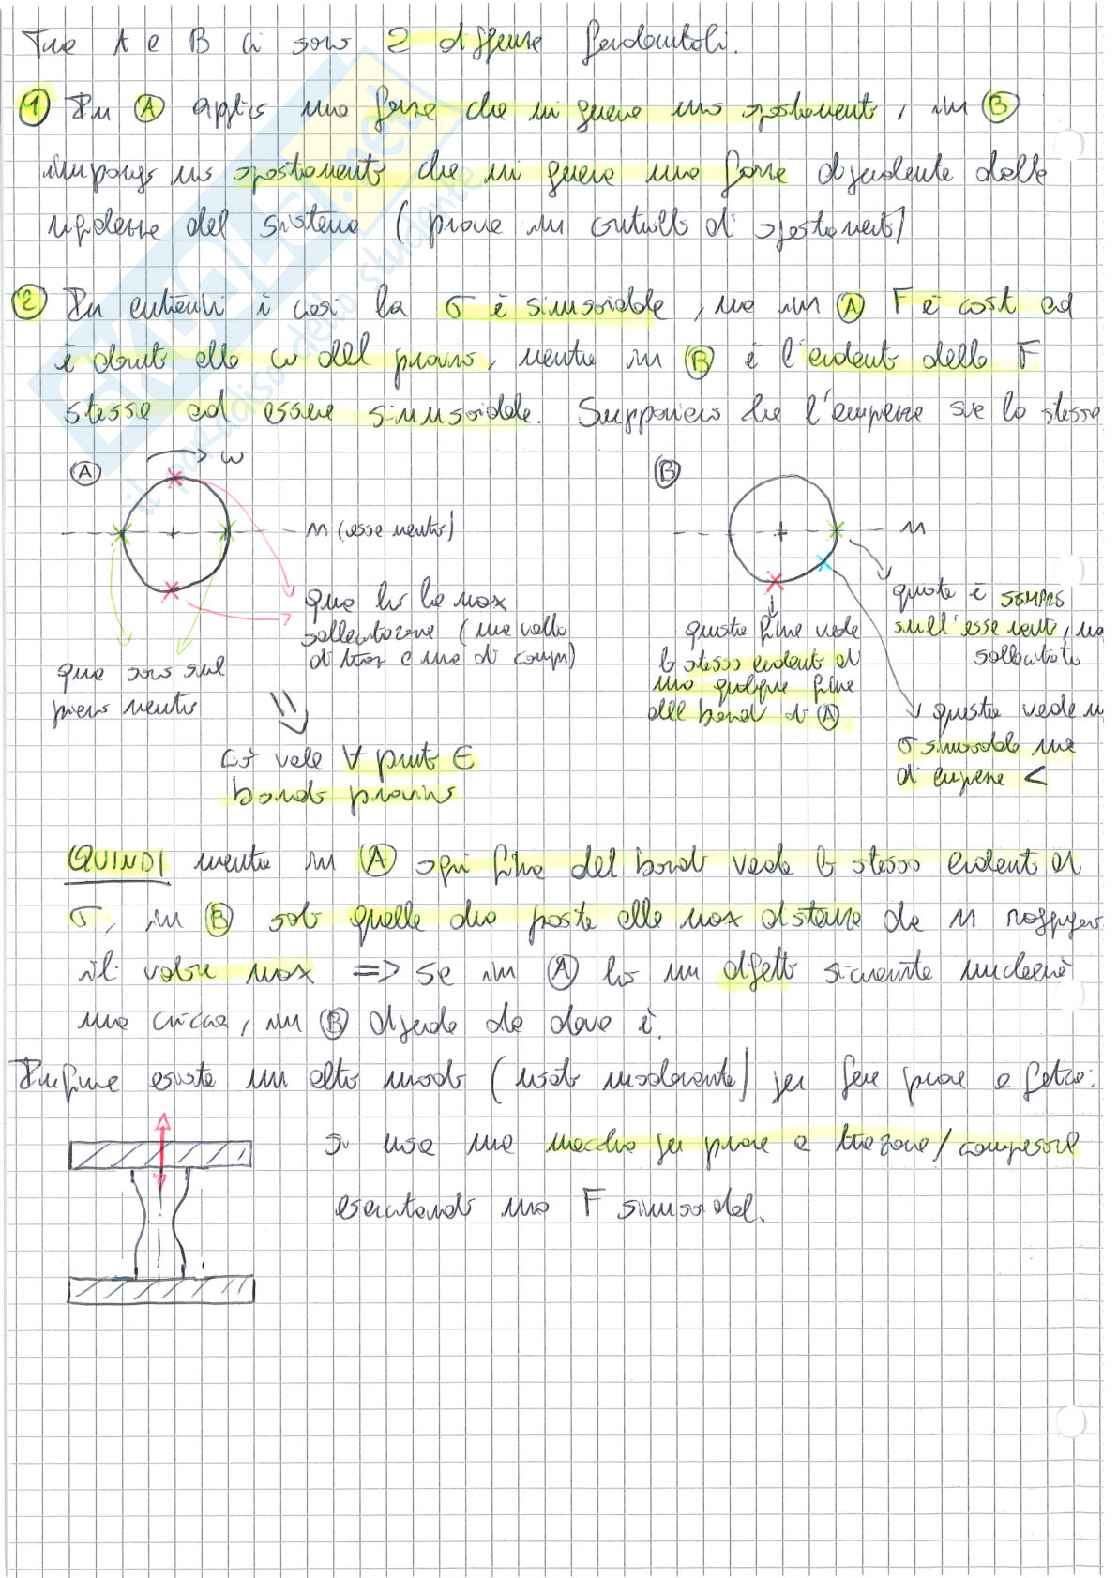 Tra A e B ci sono 2 differenze fondamentali.
① In Ⓐ applico una forza che mi genera uno spostamento, in Ⓑ
impongo uno spostamento che mi genera una forza dipendente dalla
rigidezza del sistema (prova in controllo di spostamento)
② In entrambi i casi la σ è sinusoidale, ma in Ⓐ F è cost ed
è dovuto alla ω del provino, mentre in Ⓑ è l'andamento della F
stessa ad essere sinusoidale. Supponiamo che l'ampiezza sia la stessa
Ⓐ ω
n (asse neutro)
qua ho la max
sollecitazione (una volta
di traz e una di comp)
qua sono sul
piano neutro
Ciò vale ∀ punto ∈
bordo provino
Ⓑ
n
questo è SEMPRE
sull'asse neutro, no
sollecitato
questa fibra vede
lo stesso andamento di
una qualsiasi fibra
del bordo di Ⓐ
questa vede
σ sinusoidale ma
di ampiezza <
QUINDI mentre in Ⓐ ogni fibra del bordo vede lo stesso andamento di
σ, in Ⓑ solo quelle due poste alla max distanza da n raggiungono
il valore max => se in Ⓐ ho un difetto sicuramente nucleerà
una cricca, in Ⓑ dipende da dove è.
Infine esiste un altro modo (usato raramente) per fare prove a fatica:
si usa una macchina per prove a trazione/compressione
esercitando una F sinusoidale.